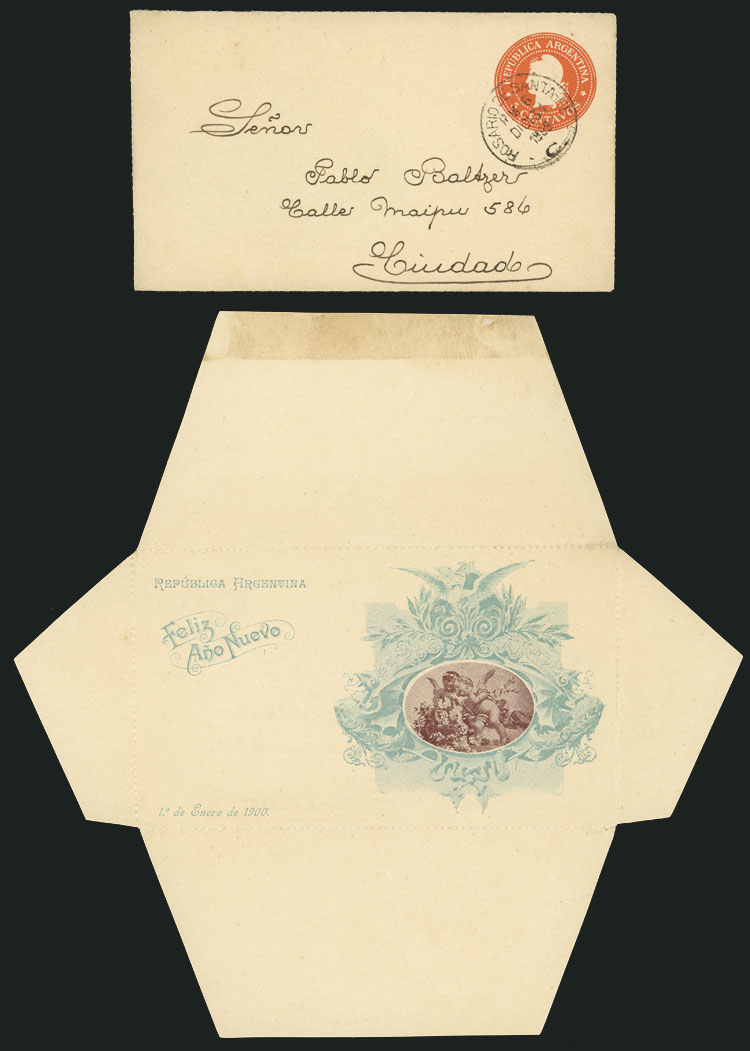 REPUBLICA ARGENTINA
5 CENTAVOS
ROSARIO
SANTA FÉ
Señor
Pablo Baltzer
Calle Maipu 586
Ciudad
REPÚBLICA ARGENTINA
Feliz
Año Nuevo
1.º de Enero de 1900.